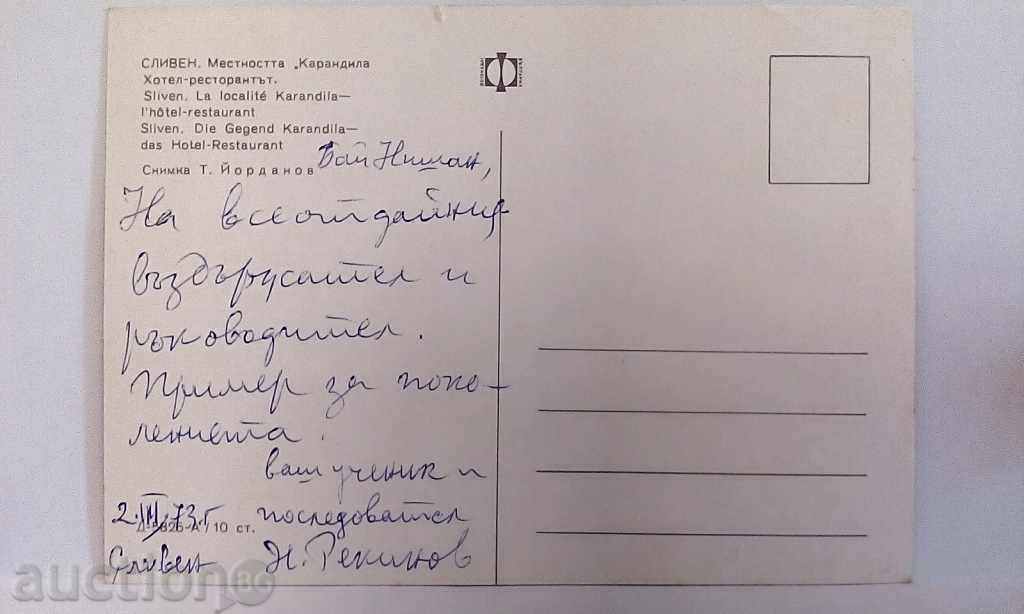 СЛИВЕН. Местността „Карандила
Хотел-ресторантът.
Sliven. La localité Karandila—
l'hôtel-restaurant
Sliven. Die Gegend Karandila—
das Hotel-Restaurant
Снимка Т. Йорданов
Бай Нишан,
На всеотдайния
въздържател и
ръководител.
Пример за поко-
ленията.
ваш ученик и
последовател
2.III.73 г
10 ст.
Сливен Н. Рекинов
auction BG